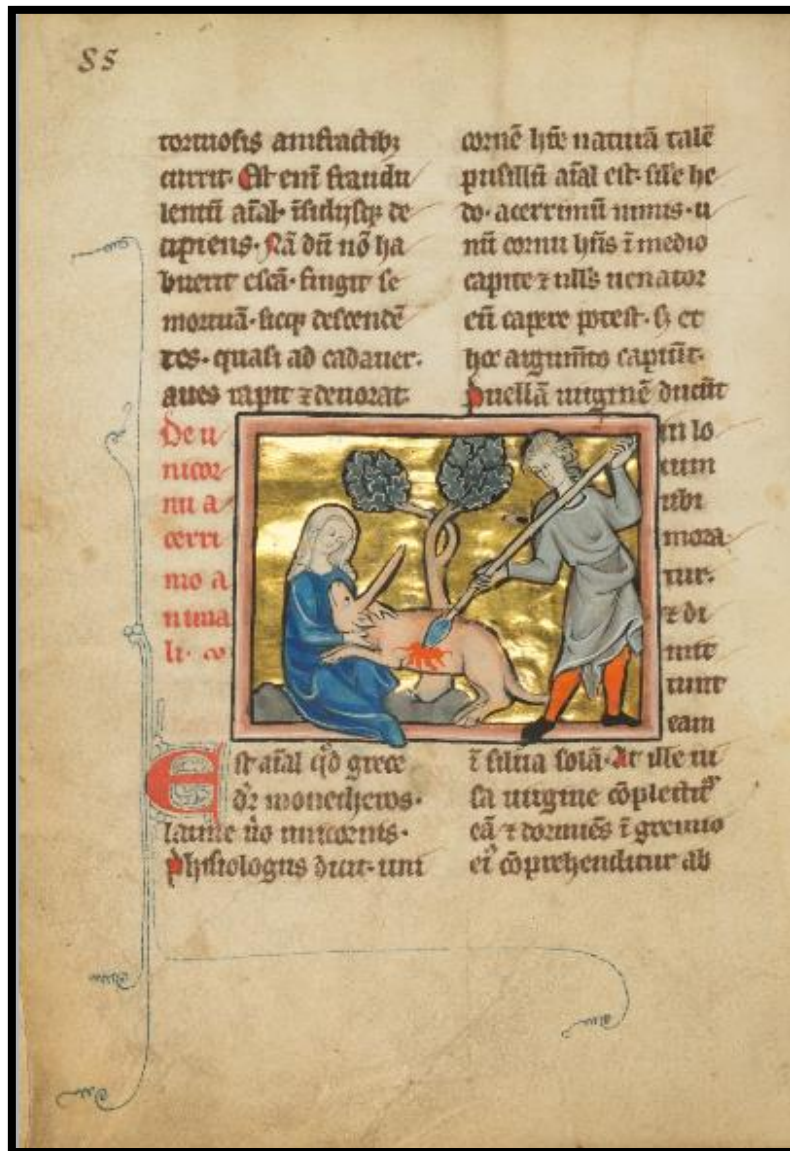 85
tortuosis amfractib;
currit. Est eni fraudu
lentū aīal. īsidijsq; de
cipiens. Nā dū nō ha
buerit escā. fingit se
mortuā. sicq; descendē
tes. quasi ad cadauer.
aues rapit ⁊ deuorat.
De u
nicor
nu a
cerri
mo a
nima
li. co
Est aīal qd grece
dr monocheros.
latine uo unicornis.
Phisiologus dicit. uni
cornē hre naturā talē
pusillū aīal est. sile he
do. acerrimū nimis. u
nū cornu hns ī medio
capite ⁊ ulls uenator
eū capere potest. s; et
hoc argumto capiūt.
Puellā uirginē ducūt
in lo
cum
ubi
mora
tur.
⁊ di
mit
tunt
eam
ī silua solā. At ille ui
sa uirgine cōplectit
eā ⁊ dormiēs ī gremio
ei cōprehenditur ab